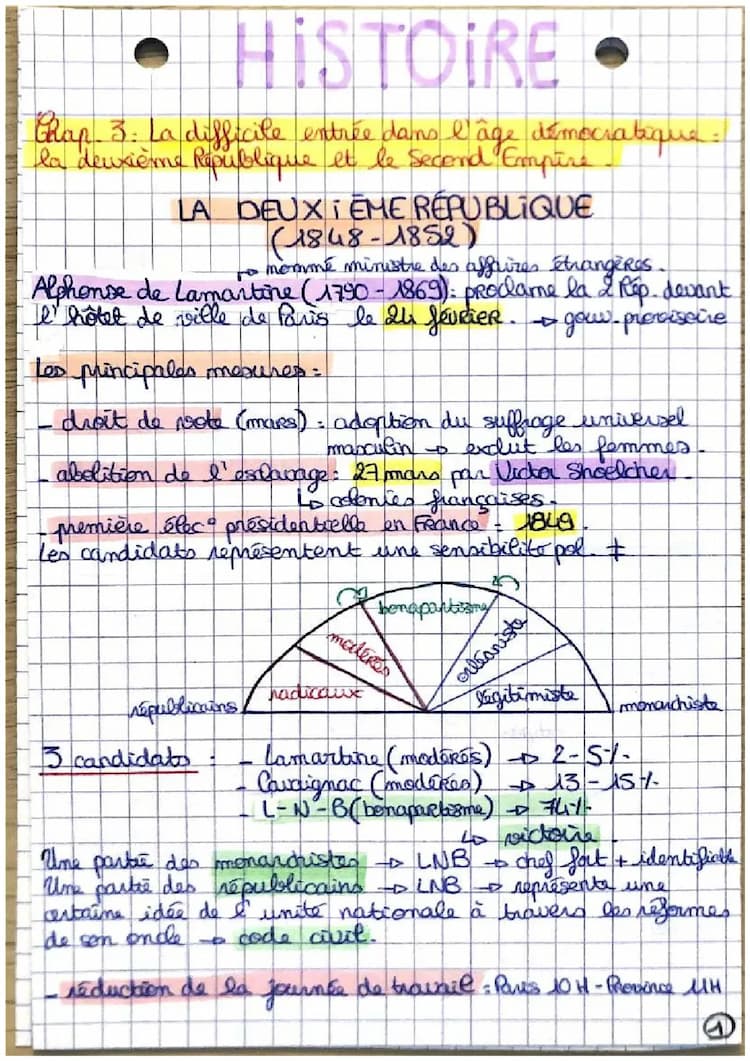 HISTOIRE
Chap. 3: La difficile entrée dans l'âge démocratique :
la deuxième République et le Second Empire.
LA DEUXIÈME RÉPUBLIQUE
(1848-1852)
↳ nommé ministre des affaires étrangères.
Alphonse de Lamartine (1790-1869): proclame la 2 Rép. devant
l'hôtel de ville de Paris le 24 février. → gouv. provisoire
Les principales mesures :
- droit de vote (mars) : adoption du suffrage universel
masculin → exclut les femmes.
- abolition de l'esclavage : 27 mars par Victor Shoelcher.
↳ colonies françaises.
- première élec° présidentielle en France : 1849.
Les candidats représentent une sensibilité pol. ≠
bonapartisme
modérés
orléaniste
radicaux
légitimiste
républicains
monarchiste
3 candidats : - Lamartine (modérés) → 2-5%.
- Cavaignac (modérés) → 13-15%
- L-N-B (bonapartisme) → 74%
↳ victoire.
Une partie des monarchistes → LNB → chef fort + identifiable
Une partie des républicains → LNB → représente une
certaine idée de l'unité nationale à travers les réformes
de son oncle → code civil.
- réduction de la journée de travail : Paris 10H - Province 11H
1